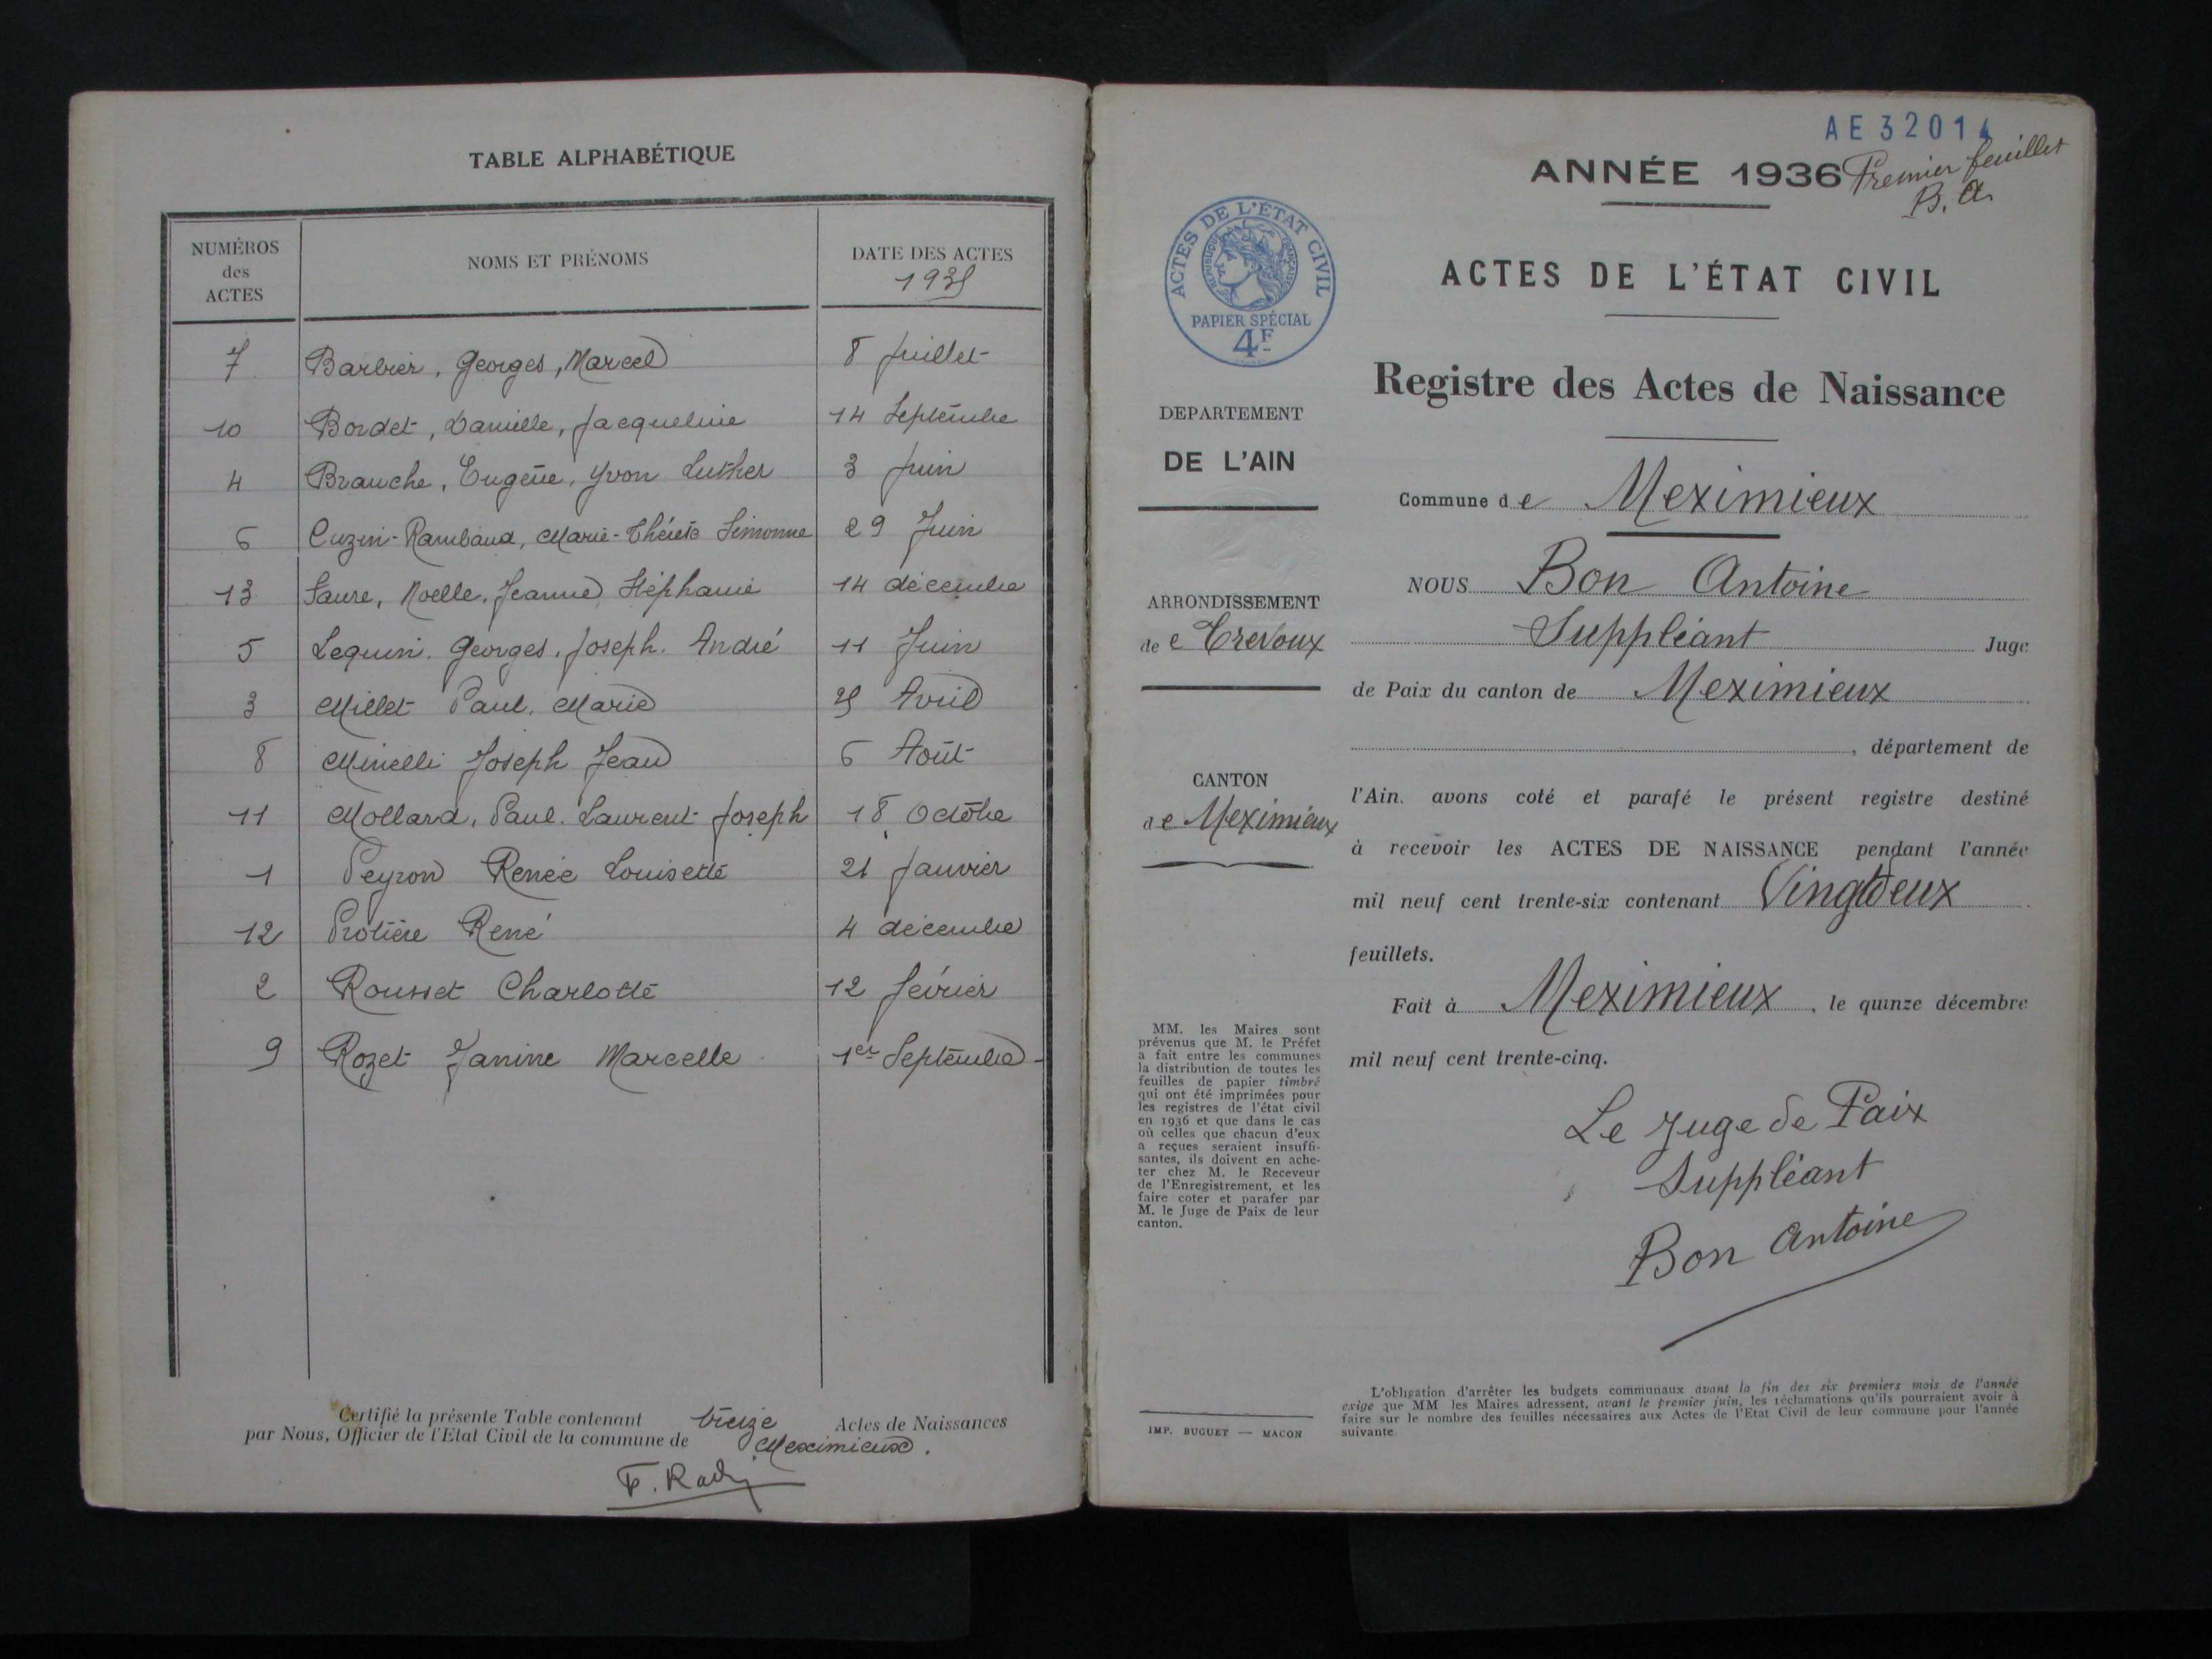 TABLE ALPHABÉTIQUE
NUMÉROS des ACTES NOMS ET PRÉNOMS DATE DES ACTES 1935
7 Barbier, Georges, Marcel 8 Juillet
10 Bordet, Danielle, Jacqueline 14 Septembre
4 Branche, Eugène, Yvon Luther 3 Juin
6 Cuzin-Rambaud, Marie-Thérèse Simonne 29 Juin
13 Faure, Noelle, Jeanne Stéphanie 14 décembre
5 Lequin. Georges. Joseph. André 11 Juin
3 Millet Paul. Marie 25 Avril
8 Minelli Joseph Jean 6 Août
11 Mollard, Paul. Laurent Joseph 18 Octobre
1 Peyron Renée Louisette 21 Janvier
12 Protière René 4 décembre
2 Rousset Charlotte 12 février
9 Rozet Janine Marcelle 1er Septembre
Certifié la présente Table contenant treize Actes de Naissances
par Nous, Officier de l'Etat Civil de la commune de Meximieux.
AE 32014
ANNÉE 1936 Premier feuillet
B. A.
ACTES DE L'ÉTAT CIVIL
RÉPUBLIQUE FRANÇAISE
PAPIER SPÉCIAL
4F
ACTES DE L'ÉTAT CIVIL
Registre des Actes de Naissance
DEPARTEMENT
DE L'AIN
Commune de Meximieux
NOUS Bon Antoine
ARRONDISSEMENT
de e Trevoux
Suppléant Juge
de Paix du canton de Meximieux
, département de
CANTON
de Meximieux
l'Ain. avons coté et parafé le présent registre destiné
à recevoir les ACTES DE NAISSANCE pendant l'année
mil neuf cent trente-six contenant Vingtdeux
feuillets.
Fait à Meximieux, le quinze décembre
mil neuf cent trente-cinq.
Le Juge de Paix
Suppléant
Bon Antoine
MM. les Maires sont
prévenus que M. le Préfet
a fait entre les communes
la distribution de toutes les
feuilles de papier timbré
qui ont été imprimées pour
les registres de l'état civil
en 1936 et que dans le cas
où celles que chacun d'eux
a reçues seraient insuffi-
santes, ils doivent en ache-
ter chez M. le Receveur
de l'Enregistrement, et les
faire coter et parafer par
M. le Juge de Paix de leur
canton.
IMP. BUGUET — MACON
L'obligation d'arrêter les budgets communaux avant la fin des six premiers mois de l'année
exige que MM les Maires adressent, avant le premier juin, les réclamations qu'ils pourraient avoir à
faire sur le nombre des feuilles nécessaires aux Actes de l'Etat Civil de leur commune pour l'année
suivante.